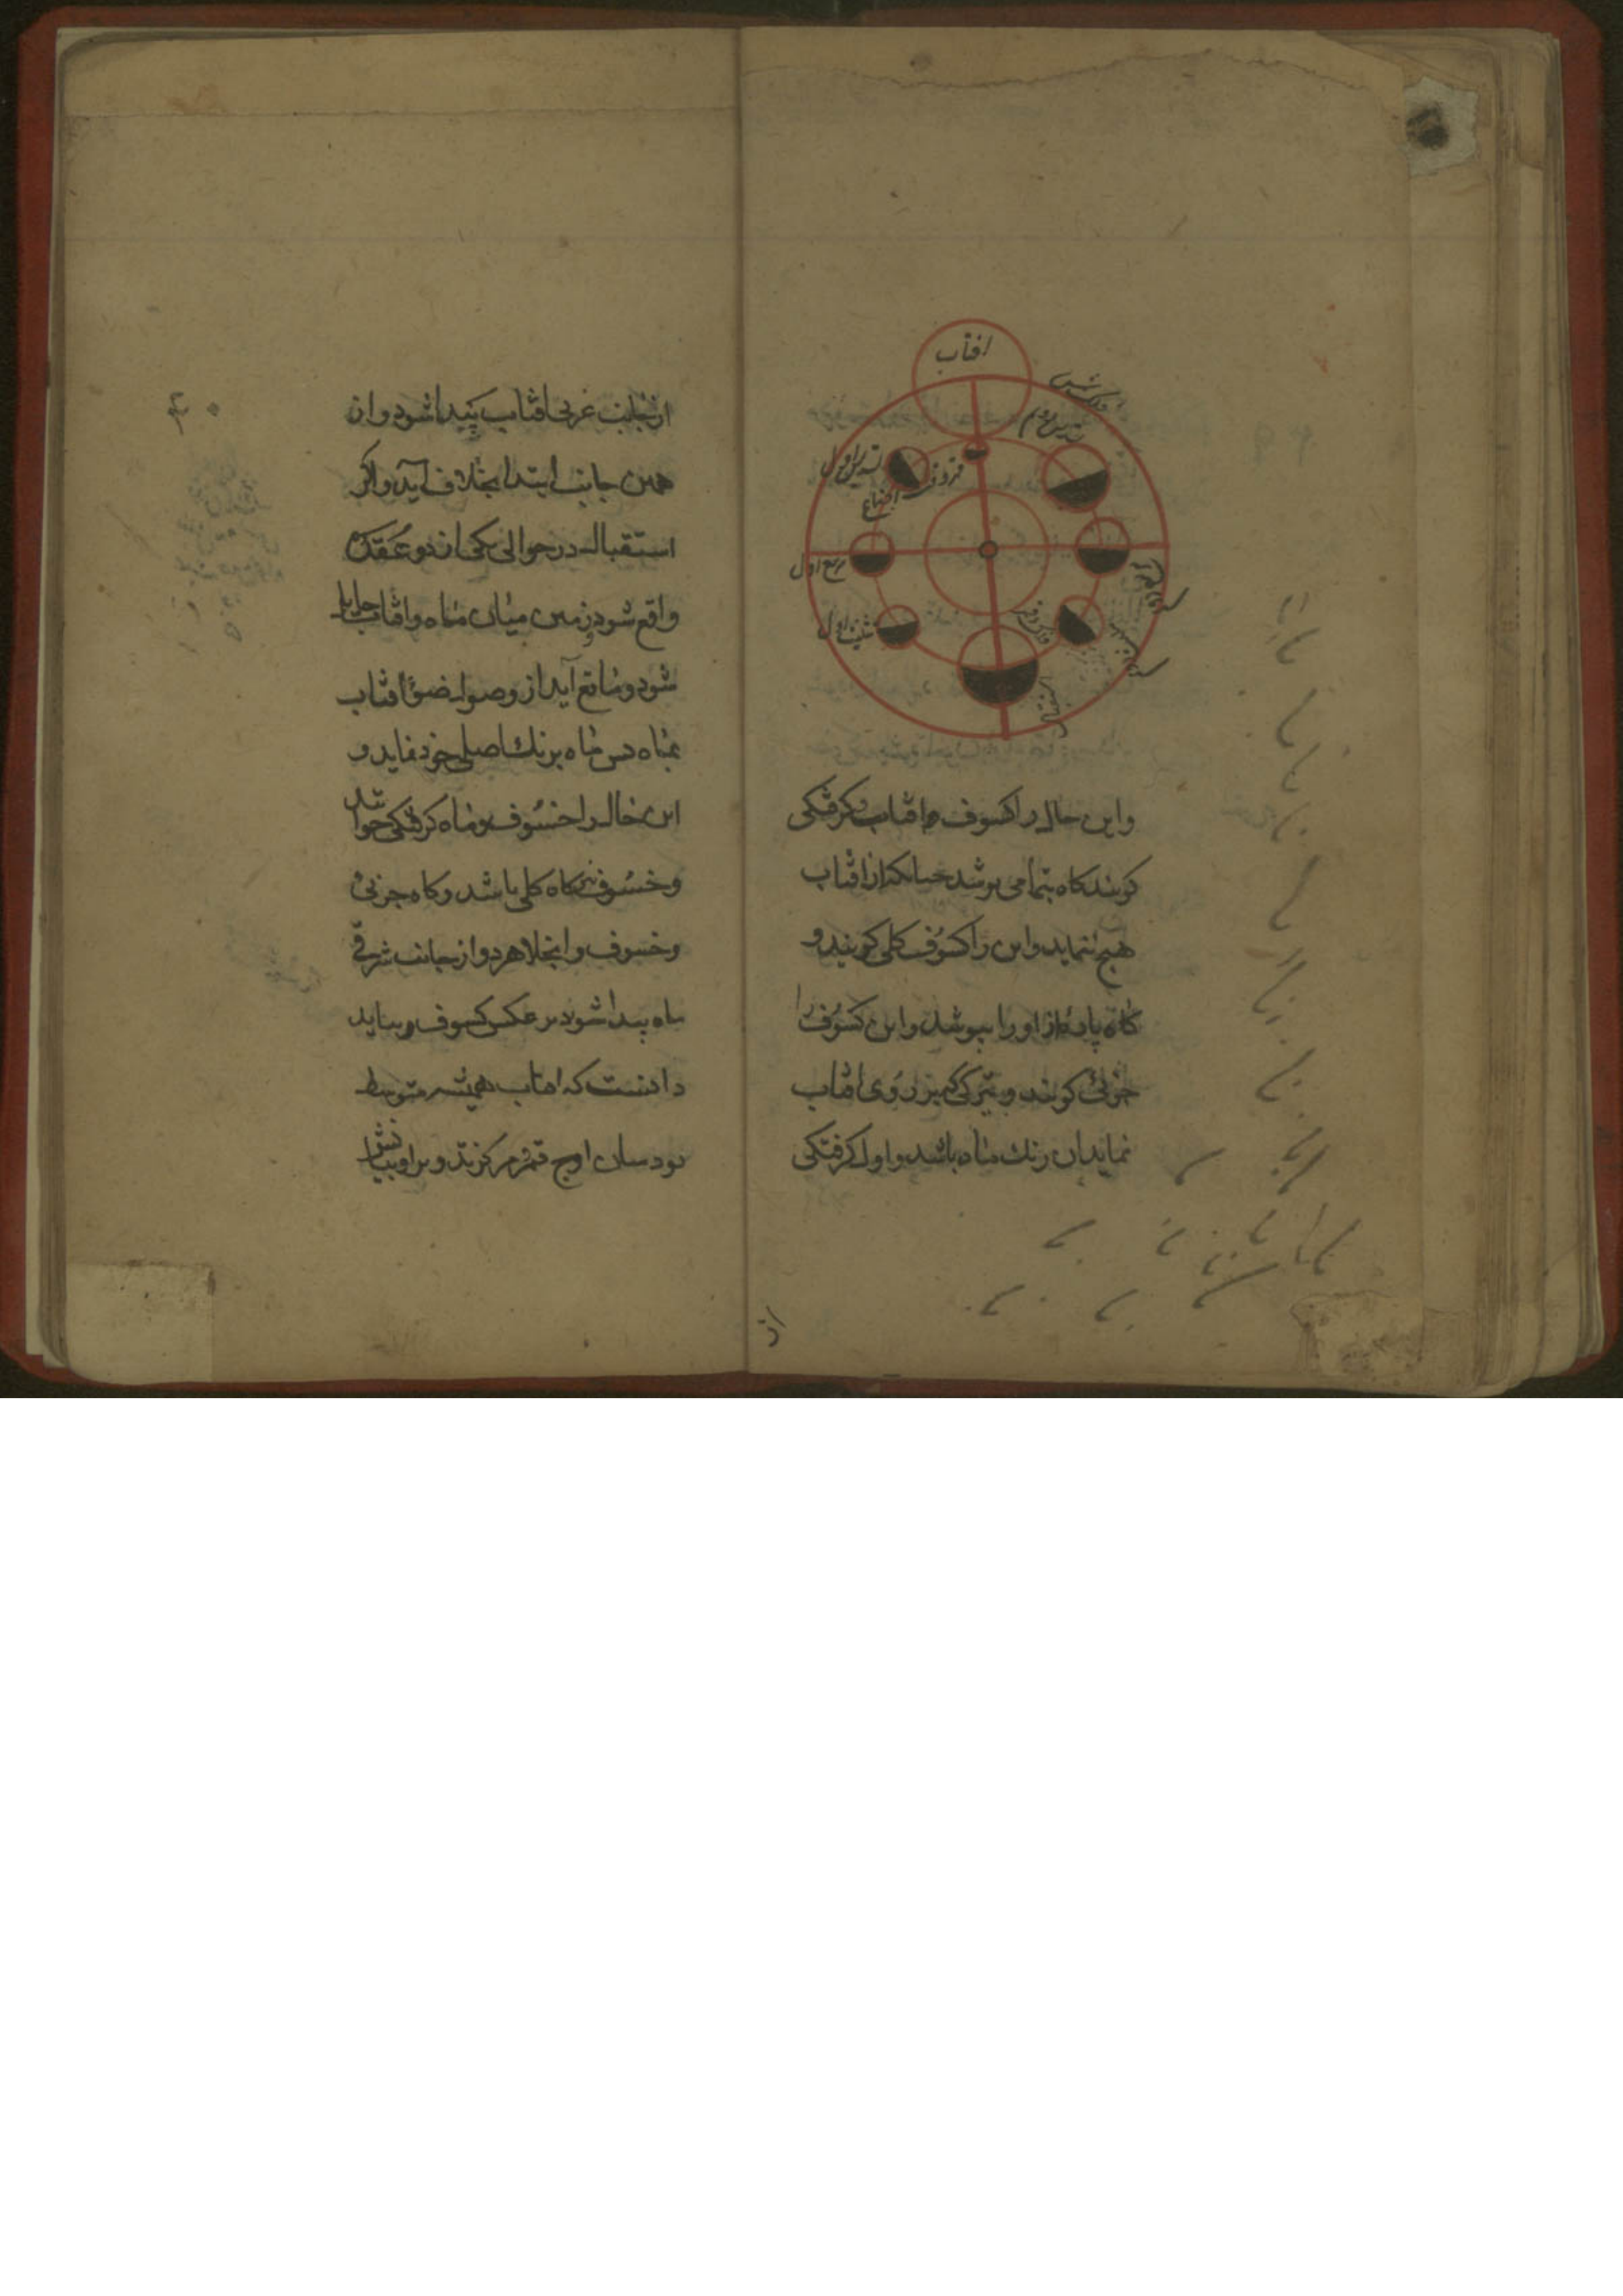 افتاب
فلک شمس
تسدیس دوم
تسدیس اول
اجتماع
تربیع اول
تثلیث اول
استقبال
واین حال را کسوف و افتاب کرفتکی
کویند کاه بتمامی پوشد چنانکه از افتاب
هیچ ننماید و این را کسوف کلی کویند و
کاه پاره از او را بپوشد و این کسوف را
جزئی کویند و تیرکی که بر روی افتاب
نماید ان رنك ماه باشد و اول کرفتکی
از
۴۰
از جانب غربی افتاب پیدا شود و از
همین جانب ابتدا بجلا آید و اکر
استقبال در حوالی یکی از دو عقده
واقع شود زمین میان ماه و افتاب حایل
شود و مانع آید از وصول ضوء افتاب
بماه پس ماه برنك اصلی خود نماید و
این حال را خسوف و ماه کرفتکی خوانند
و خسوف نیز کاه کلی باشد و کاه جزئی
و خسوف و انجلا هر دو از جانب شرقی
ماه پیدا شود بر عکس کسوف و بباید
دانست که افتاب همیشه متوسط
بود میان اوج قمر و مرکز تدویر او بیانش